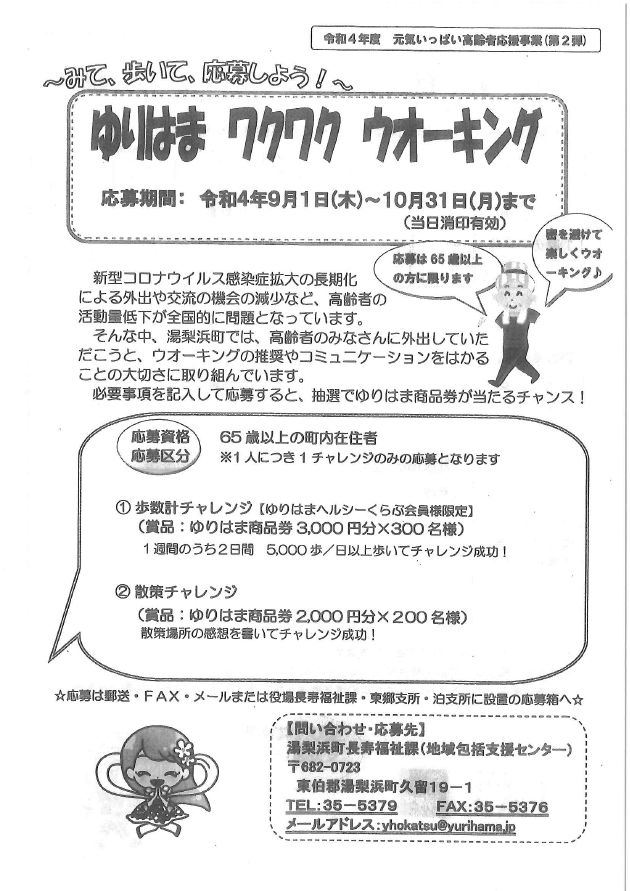 令和４年度　元気いっぱい高齢者応援事業（第２弾）
～みて、歩いて、応募しよう！～
ゆりはま　ワクワク　ウオーキング
応募期間：　令和4年9月1日(木)～10月31日(月)まで
（当日消印有効）
応募は 65 歳以上
の方に限ります
密を避けて
楽しくウオ
ーキング♪
新型コロナウイルス感染症拡大の長期化
による外出や交流の機会の減少など、高齢者の
活動量低下が全国的に問題となっています。
そんな中、湯梨浜町では、高齢者のみなさんに外出していた
だこうと、ウオーキングの推奨やコミュニケーションをはかる
ことの大切さに取り組んでいます。
必要事項を記入して応募すると、抽選でゆりはま商品券が当たるチャンス！
応募資格　65 歳以上の町内在住者
応募区分　※１人につき１チャレンジのみの応募となります
① 歩数計チャレンジ【ゆりはまヘルシーくらぶ会員様限定】
（賞品：ゆりはま商品券 3,000 円分×300 名様）
１週間のうち２日間　5,000 歩／日以上歩いてチャレンジ成功！
② 散策チャレンジ
（賞品：ゆりはま商品券 2,000 円分×200 名様）
散策場所の感想を書いてチャレンジ成功！
☆応募は郵送・ＦＡＸ・メールまたは役場長寿福祉課・東郷支所・泊支所に設置の応募箱へ☆
【問い合わせ・応募先】
湯梨浜町長寿福祉課（地域包括支援センター）
〒682-0723
東伯郡湯梨浜町久留19－1
TEL：35－5379　　FAX：35－5376
メールアドレス：yhokatsu@yurihama.jp